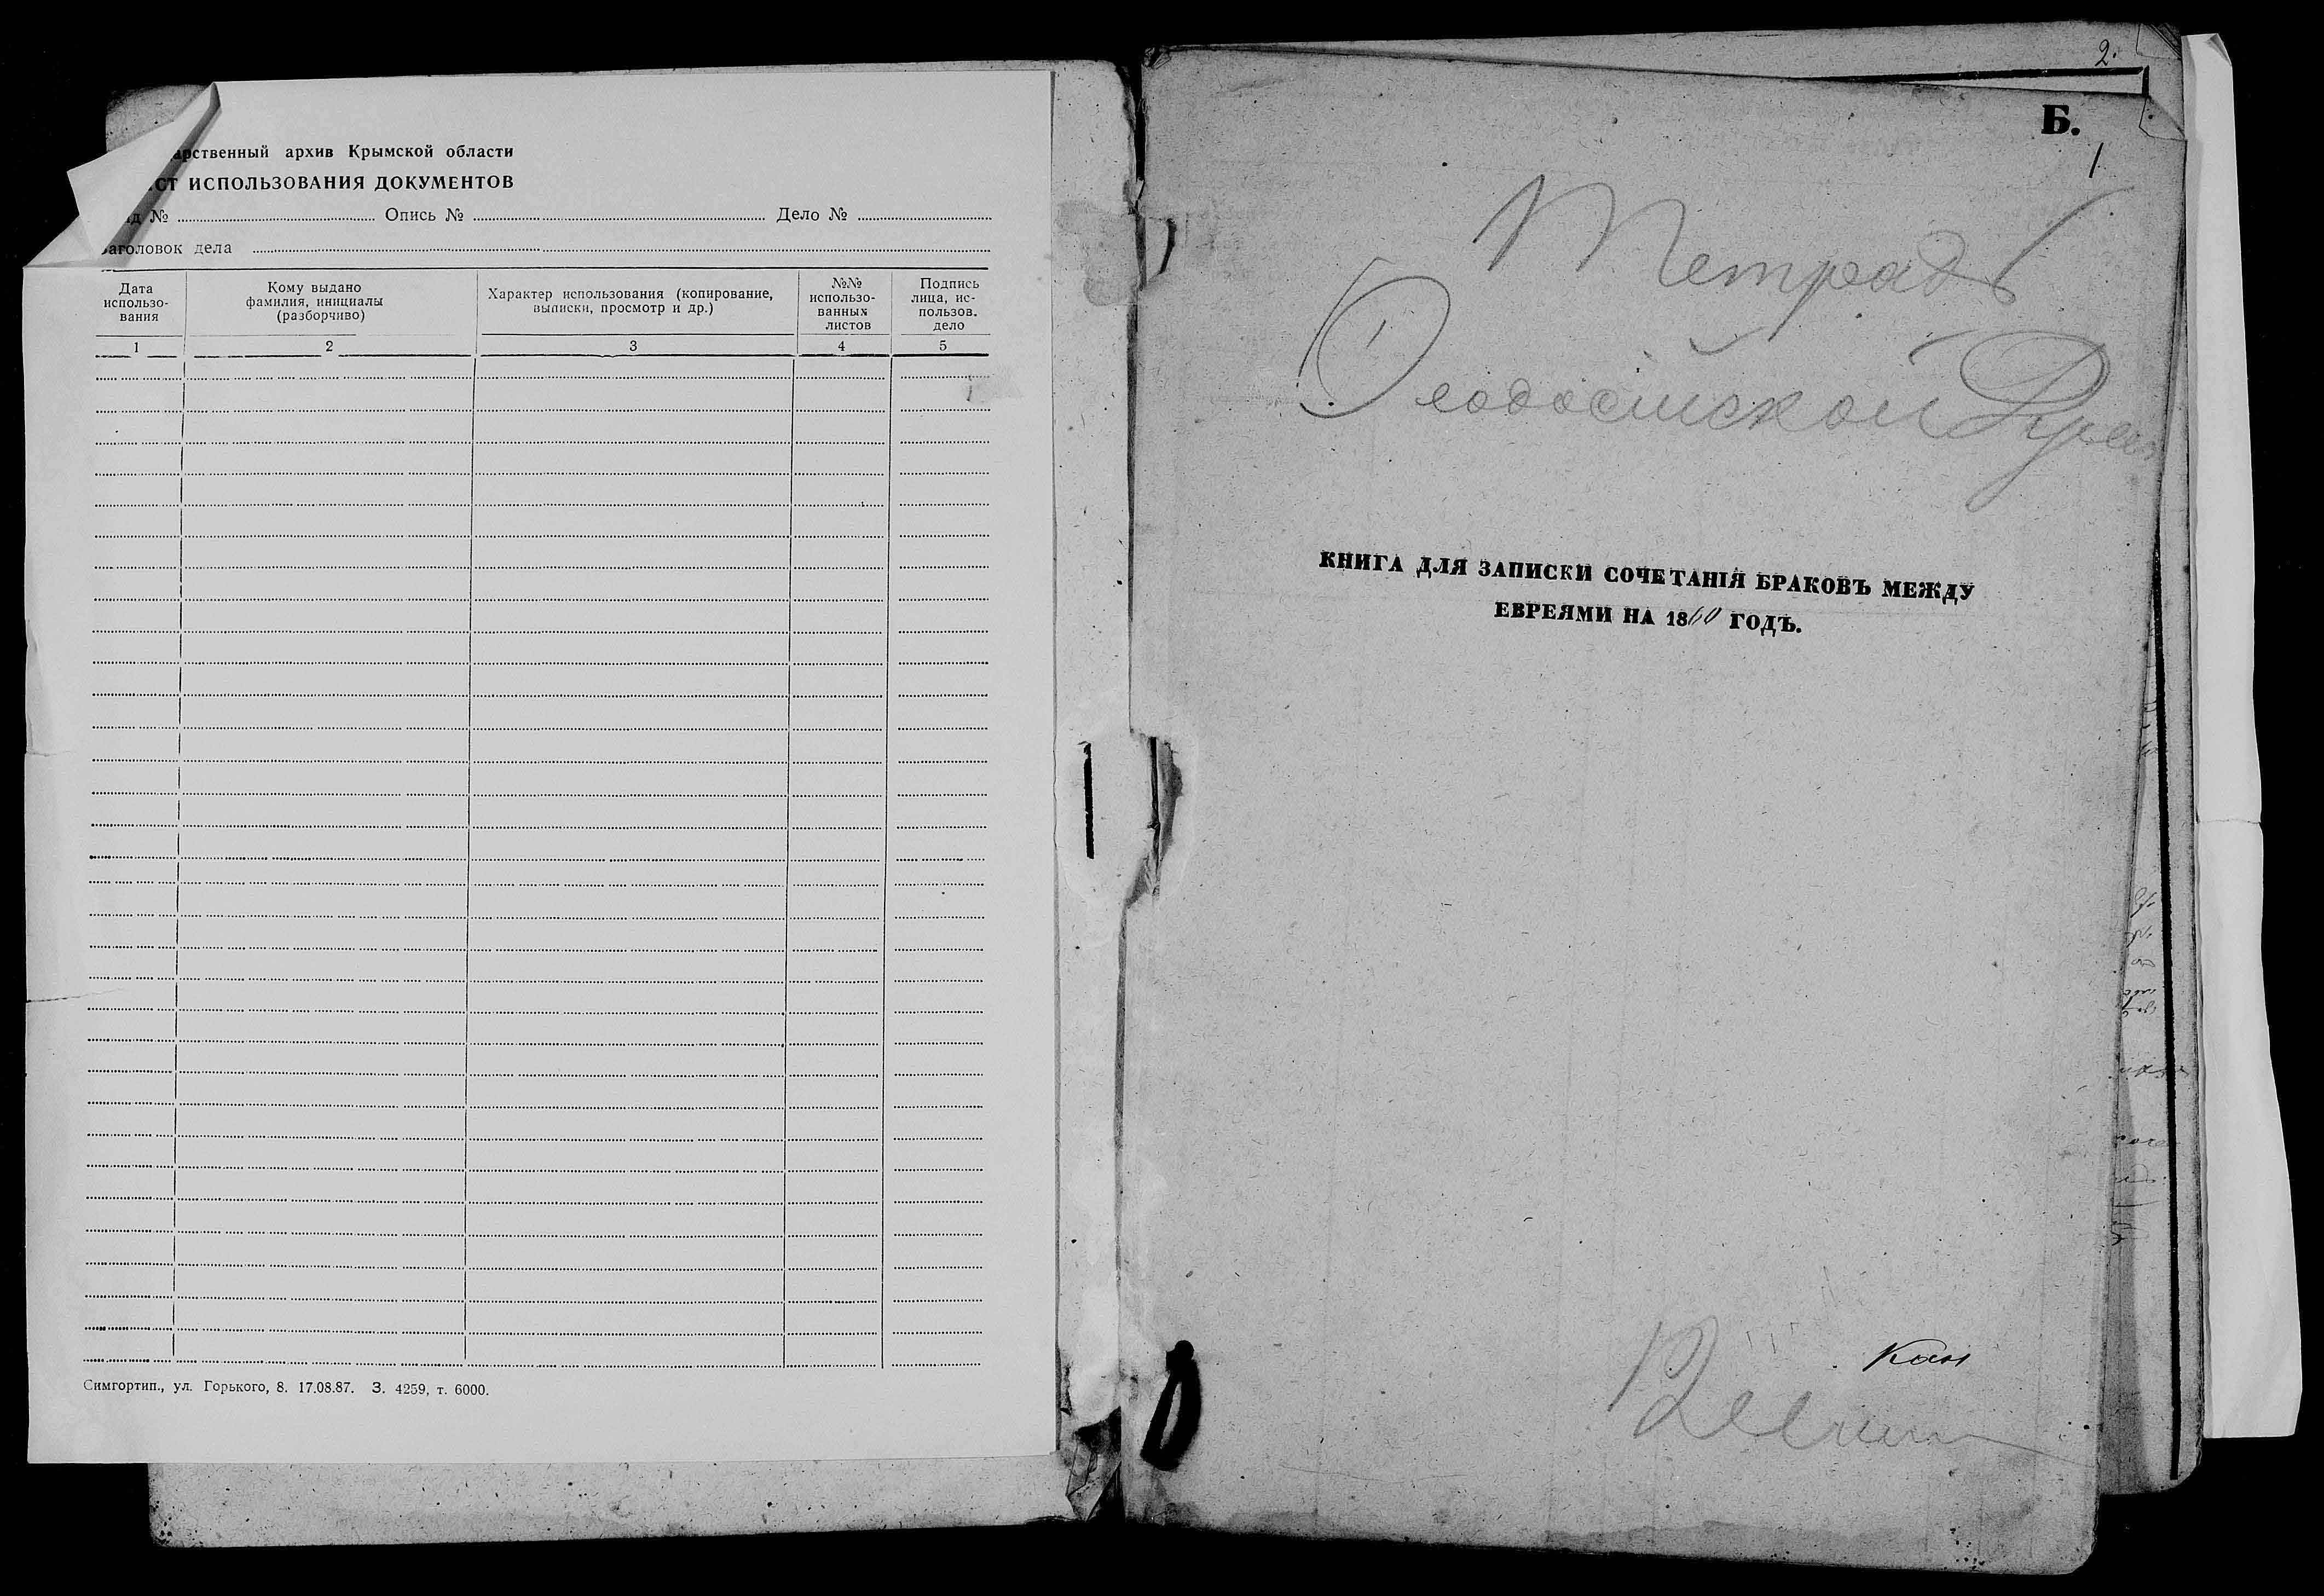 арственный архив Крымской области
СТ ИСПОЛЬЗОВАНИЯ ДОКУМЕНТОВ
д № Опись № Дело №
аголовок дела
Дата использо-вания
Кому выдано фамилия, инициалы (разборчиво)
Характер использования (копирование, выписки, просмотр и др.)
№№ использо-ванных листов
Подпись лица, ис-пользов. дело
1 2 3 4 5
Симгортип., ул. Горького, 8. 17.08.87. З. 4259, т. 6000.
2.
Б.
1
Тетрадь
Ѳеодосійской
КНИГА ДЛЯ ЗАПИСКИ СОЧЕТАНІЯ БРАКОВЪ МЕЖДУ
ЕВРЕЯМИ НА 1860 ГОДЪ.